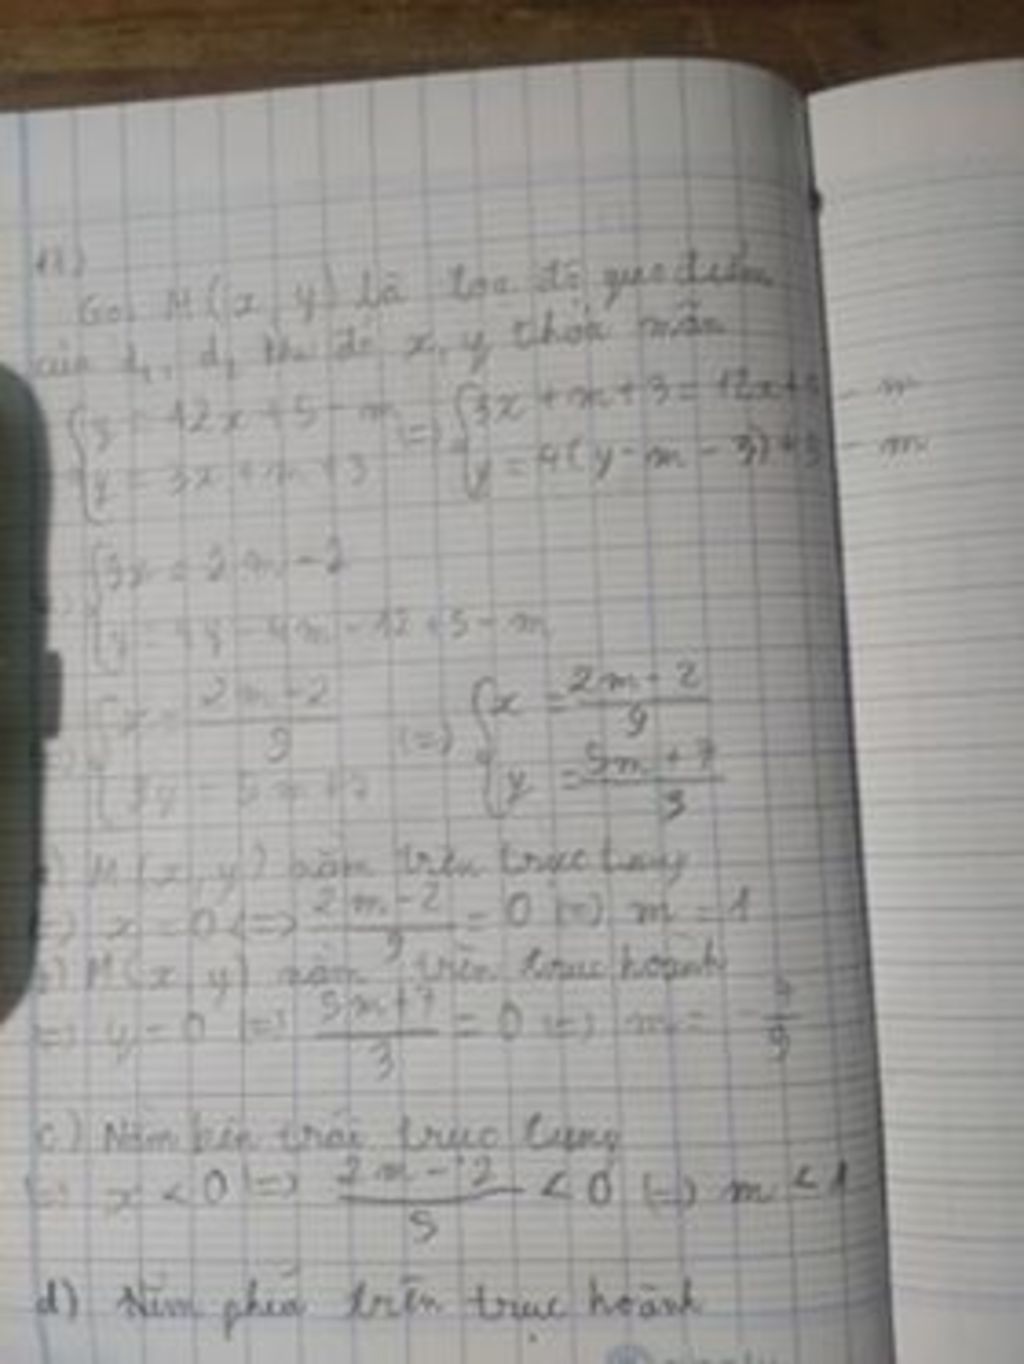 Gọi M(x, y) là tọa độ giao điểm
của d₁, d₂ khi đó x, y thỏa mãn
{y = 12x + 5 - m (=) {3x + m + 3 = 12x + 5 - m
{y = 3x + m + 3 {y = 4(y - m - 3) + 5 - m
{9x = 2m - 2
{y = 4y - 4m - 12 + 5 - m
{x = (2m - 2)/9 (=) {x = (2m - 2)/9
{3y = 5m + 7 {y = (5m + 7)/3
M(x, y) nằm trên trục tung
=) x = 0 (=) (2m - 2)/9 = 0 (=) m = 1
b) M(x, y) nằm trên trục hoành
=) y = 0 (=) (5m + 7)/3 = 0 (=) m =
c) Nằm bên trái trục tung
=) x < 0 (=) (2m - 2)/5 < 0 (=) m < 1
d) Nằm phía trên trục hoành